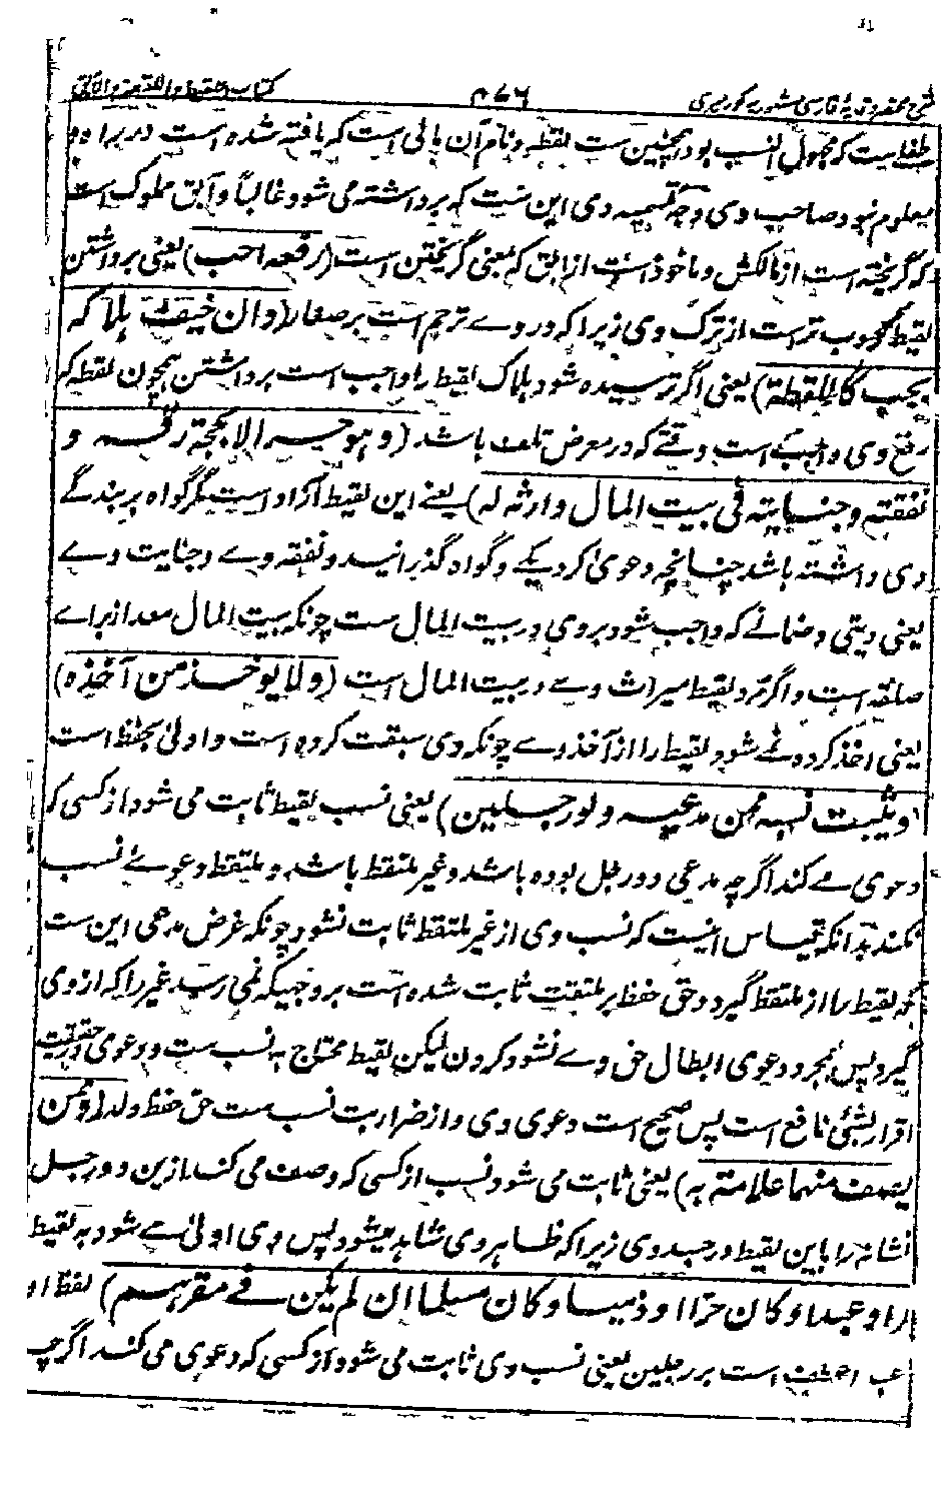 شرح مختصر وقایه فارسی مشهور به کور میری
۴۷۶
کتاب اللقیط واللقطة والآبق
طفلیست که مجهول النسب بود همچنین ست لقطه و نام آن مالی است که یافته شده است در براه و
معلوم نبود صاحب وی و وجه تسمیه وی این ست که برداشته می شود غالباً و آبق مملوک است
که گریخته است از مالکش و ماخوذ است از ابق که بمعنی گریختن است (رفعه احب) یعنی برداشتن
لقیط محبوب ترست از ترک وی زیرا که در وے ترحم است بر صغار (وان خیف هلاکه
یجب کاللقطة) یعنی اگر ترسیده شود هلاک لقیط را واجب است برداشتن همچون لقطه که
رفع وی واجب است وقتے که در معرض تلف باشد (وهو حر الا بحجة رقه و
نفقته وجنایته فی بیت المال وارثه له) یعنے این لقیط آزاد است مگر گواه بر بندگے
وی داشته باشد چنانچه دعوی کرد یکے و گواه گذرانید و نفقه وے و جنایت وے
یعنی دیتی و ضمانے که واجب شود بر وی در بیت المال ست چونکه بیت المال معد از براے
صدقه است و اگر مرد لقیط میراث وے در بیت المال است (ولا یوخذ من آخذه)
یعنی اخذ کرده نمے شود لقیط را از آخذ وے چونکه وی سبقت کرده است و اولی بحفظ است
(ویثبت نسبه ممن یدعیه ولو رجلین) یعنی نسب لقیط ثابت می شود از کسی که
دعوی مے کند اگر چه مدعی دو رجل بوده باشد و غیر ملتقط باشد و ملتقط دعوے نسب
نکند بدانکه قیاس اینست که نسب وی از غیر ملتقط ثابت نشود چونکه غرض مدعی این ست
که لقیط را از ملتقط گیرد و حق حفظ بر ملتقت ثابت شده است بر وجهیکه نمی رسد غیر را که از وی
گیرد پس بمجرد دعوی ابطال حق وے نشود کردن لیکن لقیط محتاج به نسب ست و دعوی در حقیقت
اقرار بشئی نافع است پس صحیح است دعوی وی و از ضرارت نسب ست حق حفظ ولد (وممن
یصف منهما علامته به) یعنی ثابت می شود نسب از کسی که وصف می کند ازین دو رجل
نشانه را باین لقیط در جسد وی زیرا که ظاهر وی شاهد میشود پس وی اولی مے شود به لقیط
(او عبدا وکان حرا او ذمیا وکان مسلما ان لم یکن فے مقرهم) لفظ او
است بر رجلین یعنی نسب وی ثابت می شود از کسی که دعوی می کند اگر چه